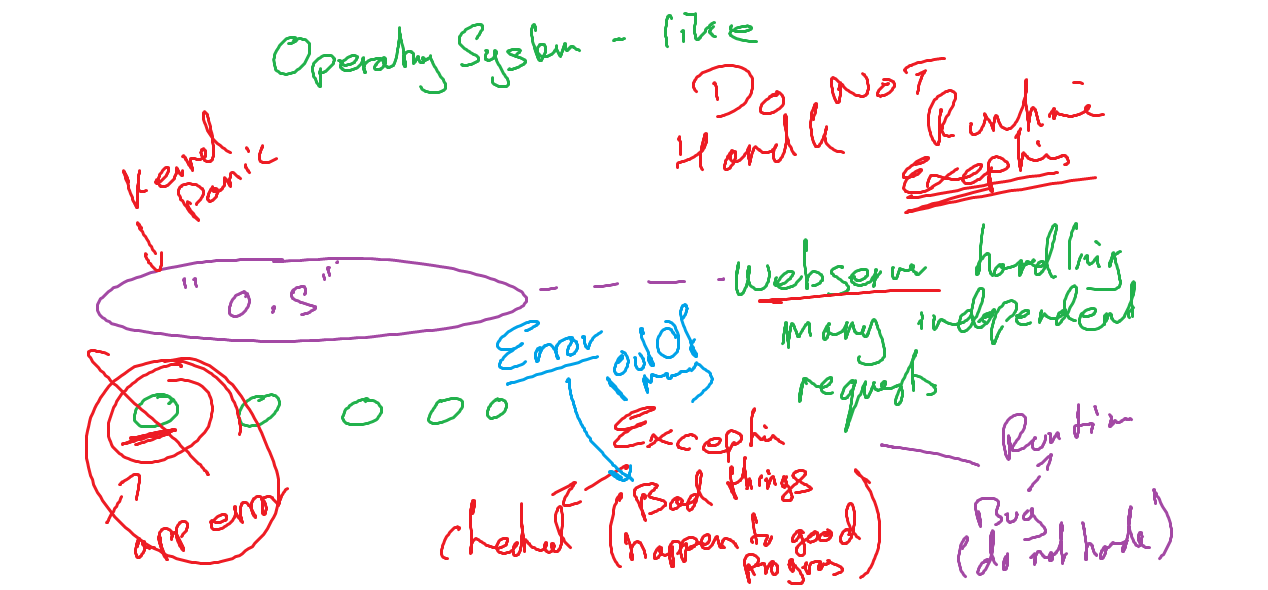 Operating System - like
DO NOT
Handle Runtime
Exceptions
Kernel
Panic
"O.S"
Webserver handling
many independent
requests
Error
(OutOf
memory)
Exception
checked
(Bad things
happen to good
programs)
Runtime
Bug
(do not handle)
app error